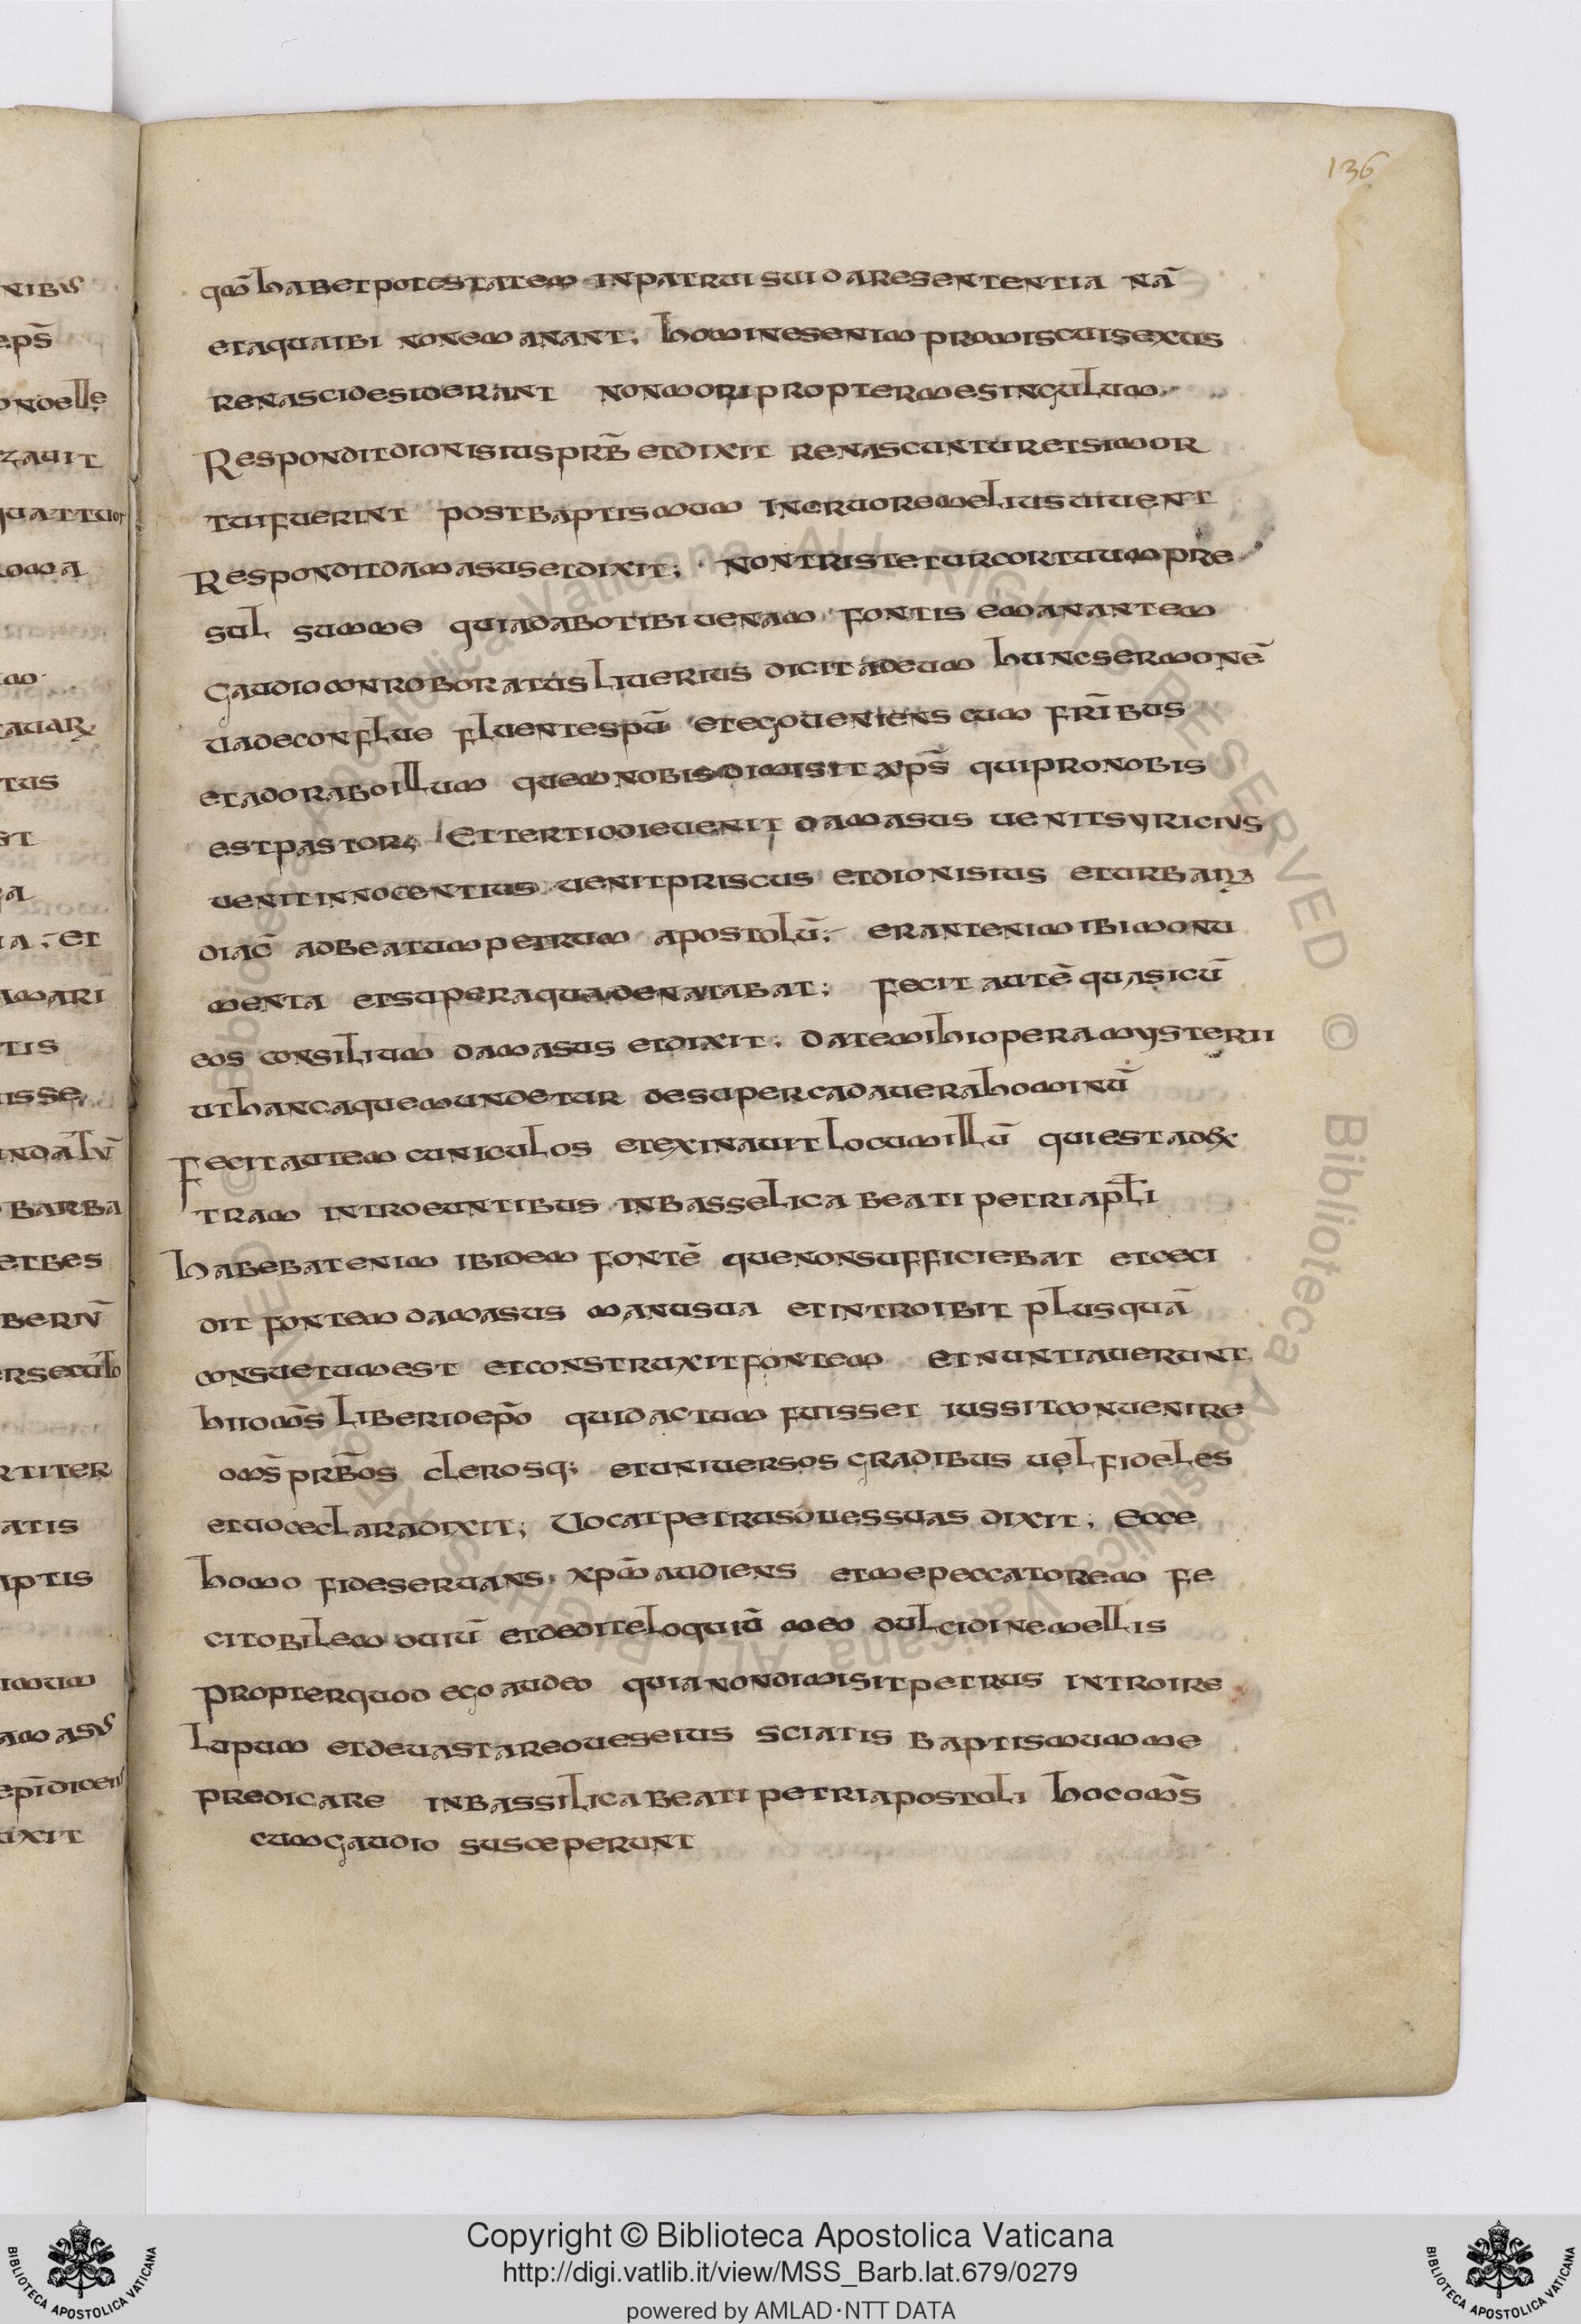 136
qm̄ habet potestatem in patrui sui dare sententia nā
et aqua ibi non emanant; homines enim promiscui sexus
renasci desiderant non mori propter me singulum.
Respondit dionisius prb̄ et dixit renascuntur et si mor
tui fuerint post baptismum in cruore melius uiuent
Respondit damasus et dixit; Non tristetur cor tuum pre
sul summe quia dabo tibi uenam fontis emanantem
Gaudio conroboratus liuerius dicit ad eum hunc sermonē
uade conflue fluente spū et ego ueniens cum fr̄ibus
et adorabo illum quem nobis dimisit xps̄ qui pro nobis
est pastor; Et tertio die uenit damasus uenit syricius
uenit innocentius uenit priscus et dionisius et urbanꝫ
diac̄ ad beatum petrum apostolū; erant enim ibi monu
menta et super aqua denatabat; fecit autē quasi cū
eos consilium damasus et dixit; Date mihi opera mysterii
ut hanc aque mundetur desuper cadauera hominū
Fecit autem cuniculos et exinauit locum illū qui est ad dex
tram introeuntibus in basselica beati petri apłi
habebat enim ibidem fontē que non sufficiebat et ceci
dit fontem damasus manu sua et introibit plus quā
consuetum est et construxit fontem et nuntiauerunt
hii oms̄ liberio epō quid actum fuisset iussit conuenire
oms̄ prb̄os clerosq; et uniuersos gradibus uel fideles
et uoce clara dixit; Uocat petrus oues suas dixit; Ecce
homo fide seruans xpm̄ audiens et me peccatorem fe
cit obilem ouiū et dedit eloquiū meo dulcidine mellis
propter quod ego audeo quia non dimisit petrus introire
lupum et deuastare oues eius sciatis baptismum me
predicare in bassilica beati petri apostoli hoc oms̄
cum gaudio susceperunt
Copyright © Biblioteca Apostolica Vaticana
http://digi.vatlib.it/view/MSS_Barb.lat.679/0279
powered by AMLAD·NTT DATA